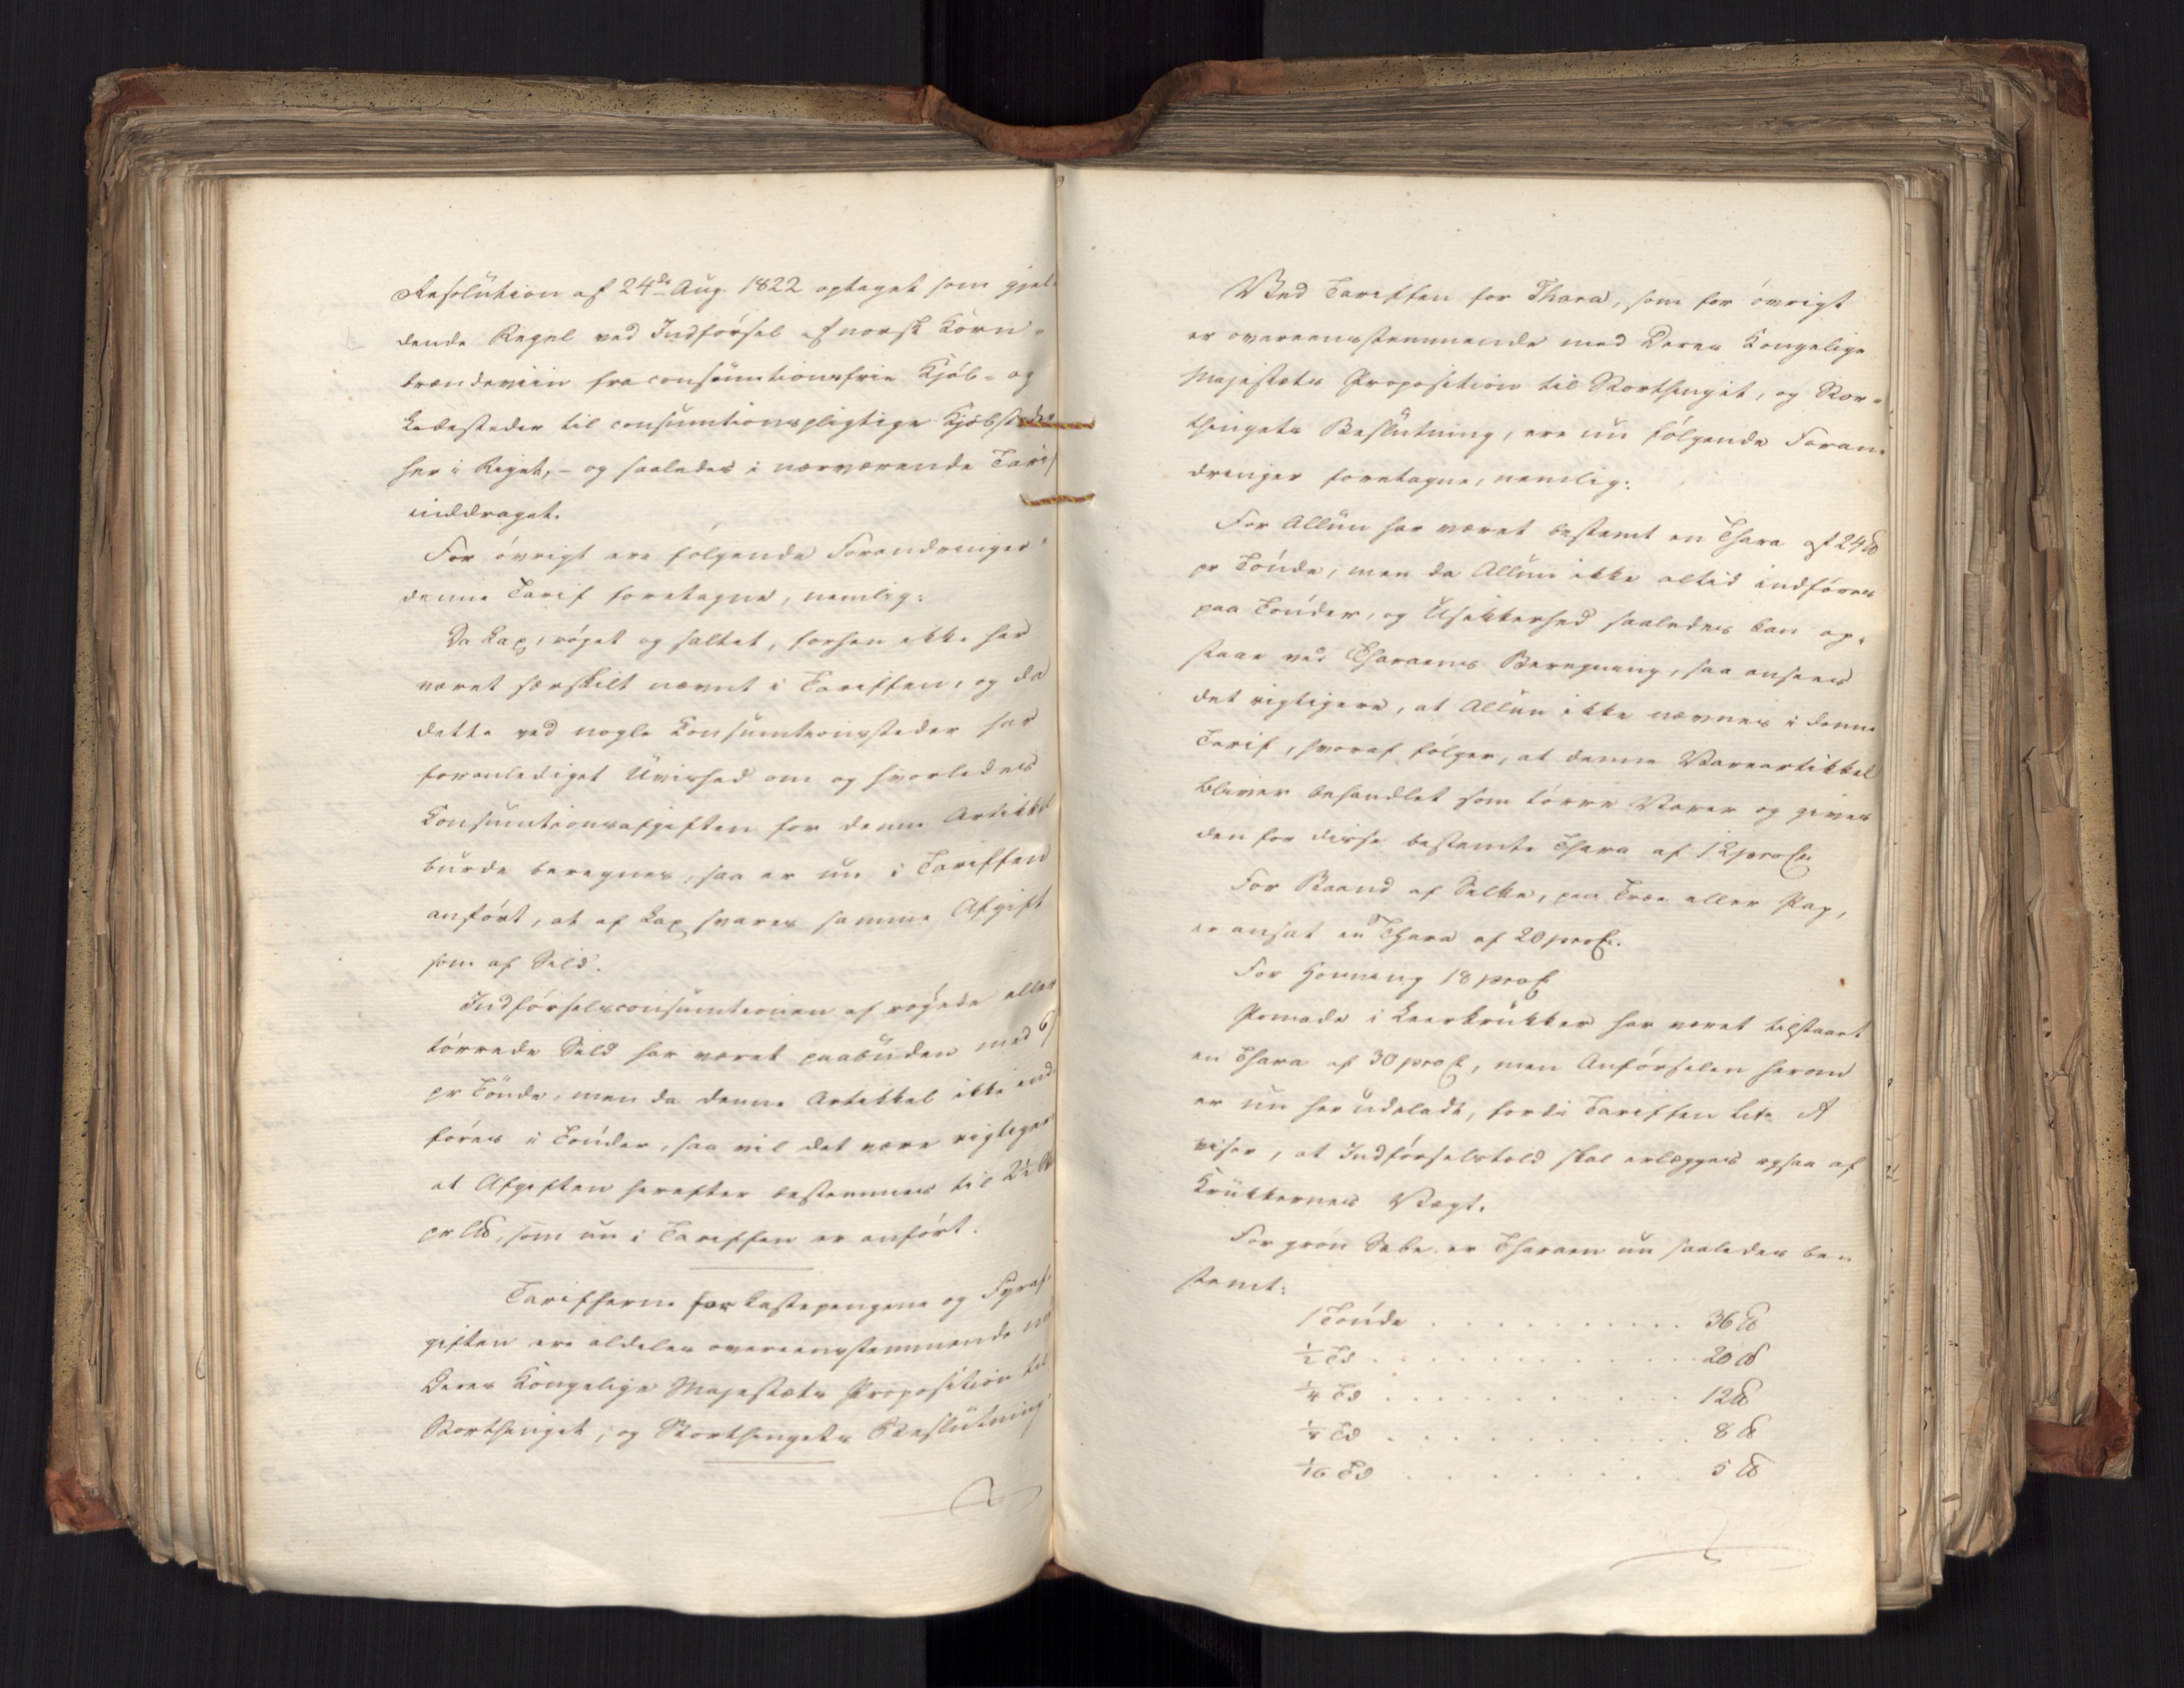 Resolution af 24de Aug. 1822 optaget som gjel-
dende Regel ved Indførsel af norsk Korn-
brændeviin fra consumtionsfrie Kjøb- og
Ladesteder til consumtionspligtige Kjøbsteder
her i Riget, – og saaledes i nærværende Tarif
inddraget.
For øvrigt ere følgende Forandringer i
denne Tarif foretagne, nemlig:
Da Lax, røget og saltet, forhen ikke har
været særskilt nævnt i Tariffen, og da
dette ved nogle Consumtionssteder har
foranlediget Uvished om og hvorledes
Consumtionsafgiften for denne Artikkel
burde beregnes, saa er nu i Tariffen
anført, at af Lax svares samme Afgift
som af Sild.
Indførselsconsumtionen af røgede eller
tørrede Sild har været paabuden med 6
pr Tønde, men da denne Artikkel ikke ind-
føres i Tønder, saa vil det være rigtigere
at Afgiften herefter bestemmes til 2½
pr L℔, som nu i Tariffen er anført.
Tarifferne for Lastepengene og Fyraf-
giften ere aldeles overeensstemmende med
Deres Kongelige Majestæts Proposition til
Storthinget, og Storthingets Beslutning
Ved Tariffen for Thara, som for øvrigt
er overeensstemmende med Deres Kongelige
Majestæts Proposition til Storthinget, og Stor-
thingets Beslutning, ere nu følgende Foran-
dringer foretagne, nemlig:
For Allun har været bestemt en Thara af 24 ℔
pr Tønde, men da Allun ikke altid indføres
paa Tønder, og Usikkerhed saaledes kan op-
staae ved Tharaens Beregning, saa ansees
det rigtigere, at Allun ikke nævnes i denne
Tarif, hvoraf følger, at denne Vareartikkel
bliver behandlet som tørre Varer og gives
den for disse bestemte Thara af 12 proCt.
For Baand af Silke, paa Træe eller Pap,
er ansat en Thara af 20 proCt.
For Honning 18 proCt
Pomade i Leerkrukker har været tilstaaet
en Thara af 30 proCt, men Anførselen herom
er nu her udeladt, fordi Tariffen Litr. A
viser, at Indførselstold skal erlægges ogsaa af
Krukkernes Vægt.
For grøn Sæbe er Tharaen nu saaledes be-
stemt:
1 Tønde . . . . . . . . . . 36 ℔
½ Td . . . . . . . . . . 20 ℔
¼ Td . . . . . . . . . . 12 ℔
⅛ Td . . . . . . . . . . 8 ℔
1/16 Td . . . . . . . . . . 5 ℔